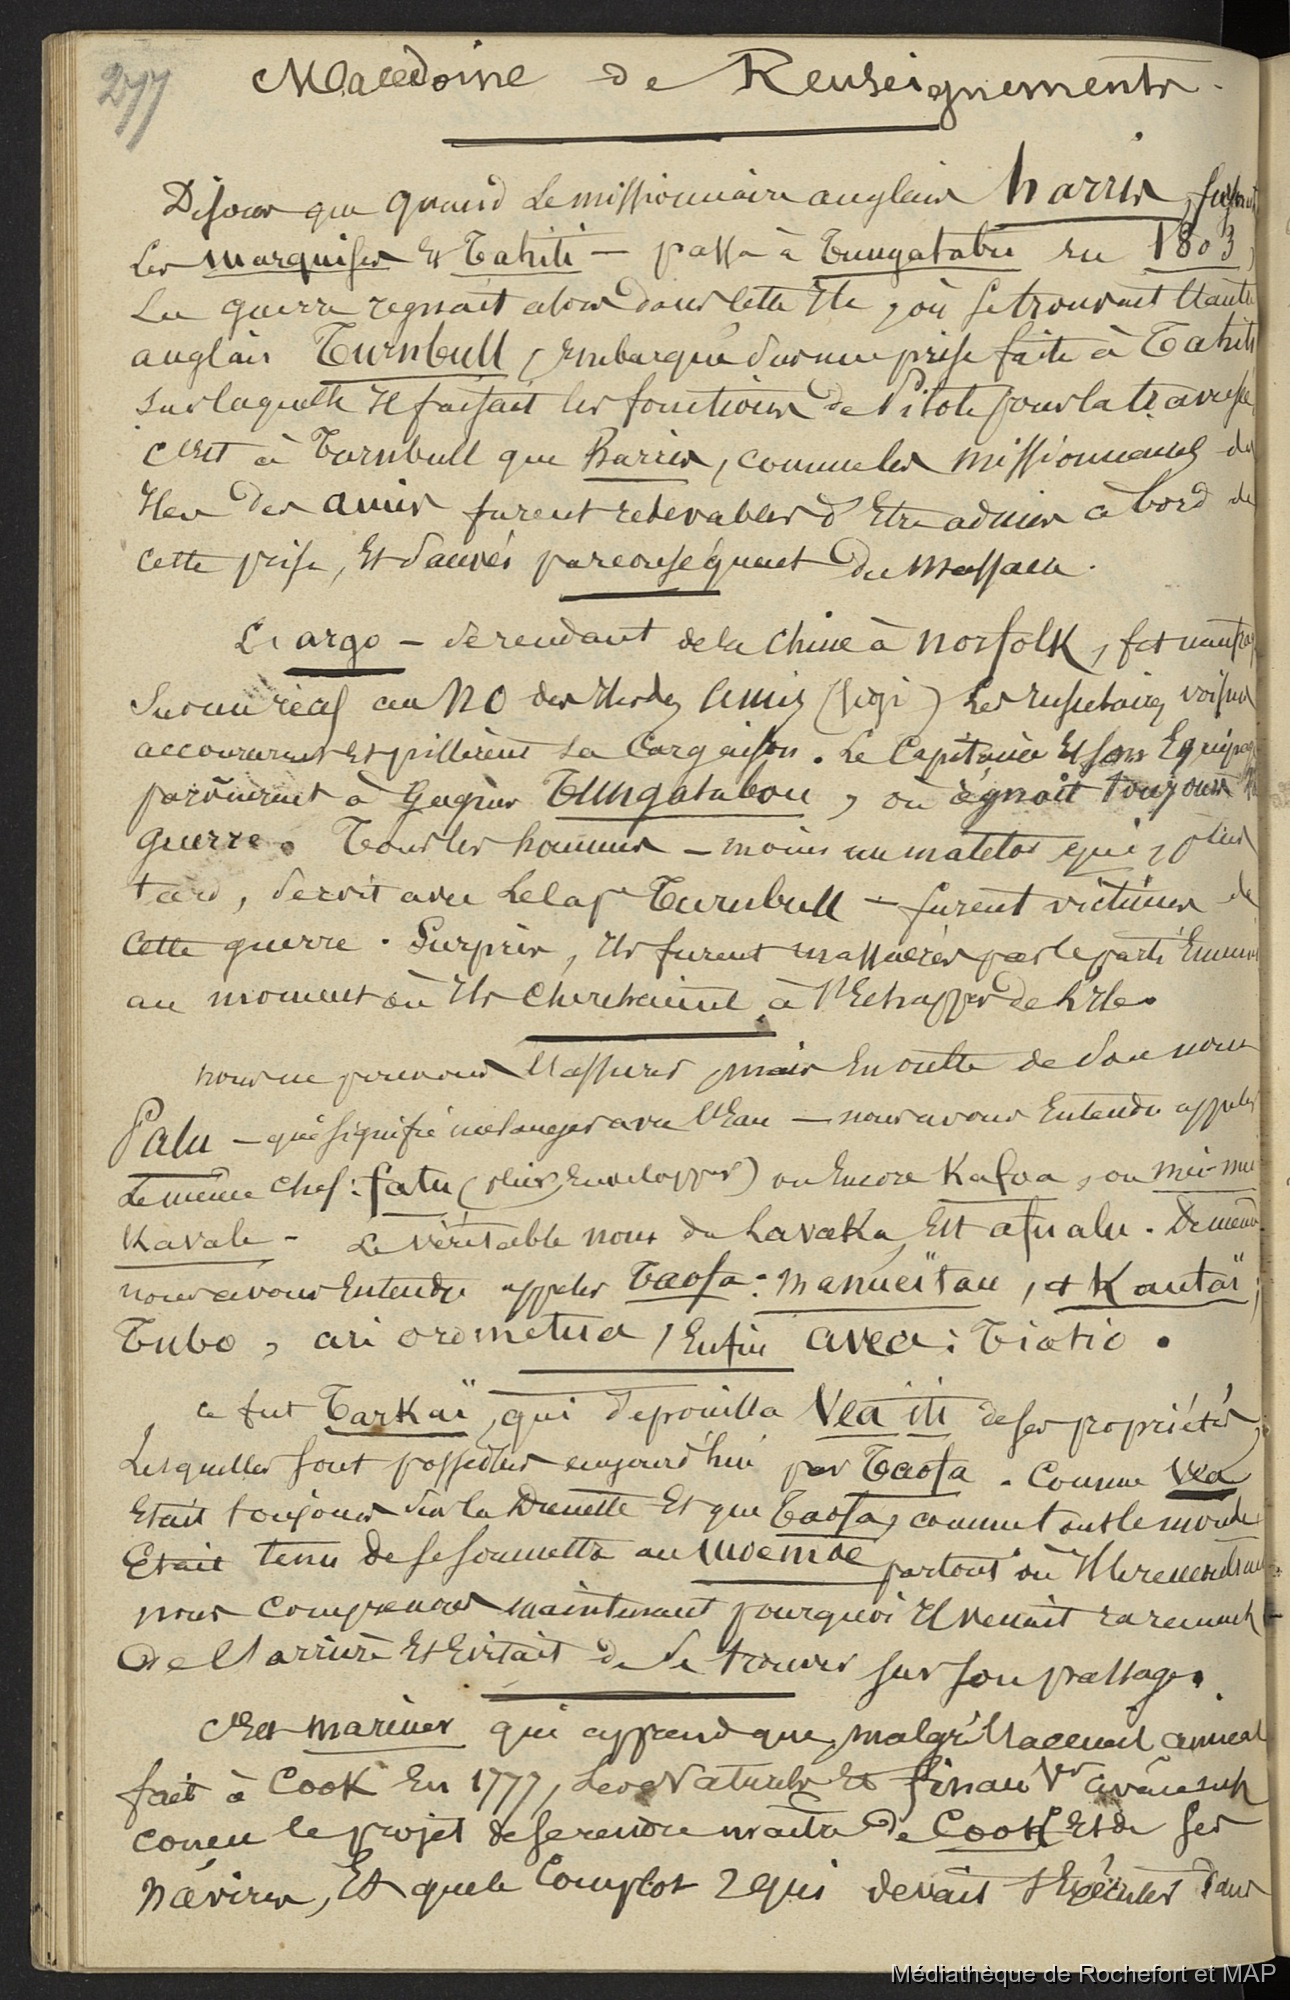 277
Macedoine de Renseignements.
Disons que quand le missionnaire anglais harris, fuyant
les marquises et Tahiti — passa à Tungatabu en 1803,
La guerre regnait alors dans cette Ile, où se trouvait l'autre
anglais Turnbull, embarqué sur une prise faite à Tahiti
sur laquelle il faisait les fonctions de Pilote pour la traversée
C'est à Turnbull que Harris, comme les missionnaires des
Iles des amis furent redevables d'etre admis à bord de
cette prise, et sauvés par conséquent du massacre.
L'argo — se rendant de la Chine à Norfolk, fit naufrage
sur un récif au NO des Iles des Amis (fiji) Les insulaires voisins
accoururent et pillèrent sa Cargaison. Le Capitaine et son Equipage
parvinrent à gagner Tungatabou, où régnait toujours la
guerre. Tous les hommes — moins un matelot qui, plus
tard, servit avec le Cap. Turnbull — furent victimes de
cette guerre. Surpris, ils furent massacrés par le parti Ennemi
au moment où ils cherchaient à s'Echapper de l'Ile.
nous ne pouvons l'assurer, mais En outre de son nom
Palu — qui signifie melanger avec l'Eau — nous avons Entendu appeler
le même chef: fatu (plier, Envelopper) ou Encore Kafoa, ou mu-mu
Kavale — Le véritable nom du Lavaka, Est afualu. De même
nous avons Entendu appeler Taofa: manueïtau, et Kautaï,
Tubo, ari orometua, Enfin avea: Tiatio.
ce fut Tarkaï, qui depouilla Vea iti de ses propriétés,
Lesquelles sont possédées aujourd'hui par Taofa. Comme Vea
Etait toujours sur la Dunette Et que Taofa, comme tout le monde
Etait tenu de se soumettre au moemoe partout où il le rencontrait
nous comprenons maintenant pourquoi il venait rarement
de l'arrière Et Evitait de se trouver sur son passage.
C'Est mariner qui apprend que, malgré l'accueil amical
fait à Cook En 1777, les Naturels Et Finau 1er avaient
concu le projet de se rendre maitre de Cook Et de ses
navires, Et que le Complot, qui devait s'Exécuter dans
Médiathèque de Rochefort et MAP